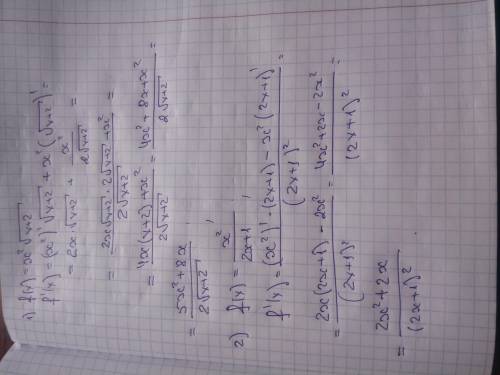 1) f(x) = x² √(x+2)
f'(x) = (x²)' √(x+2) + x² (√(x+2))' =
= 2x · √(x+2) + x² / (2√(x+2)) =
= (2x√(x+2) · 2√(x+2) + x²) / (2√(x+2)) =
= (4x(x+2) + x²) / (2√(x+2)) = (4x² + 8x + x²) / (2√(x+2)) =
= (5x² + 8x) / (2√(x+2))
2) f(x) = x² / (2x+1)
f'(x) = ((x²)' · (2x+1) − x² (2x+1)') / (2x+1)² =
= (2x(2x+1) − 2x²) / (2x+1)² = (4x² + 2x − 2x²) / (2x+1)² =
= (2x² + 2x) / (2x+1)² .